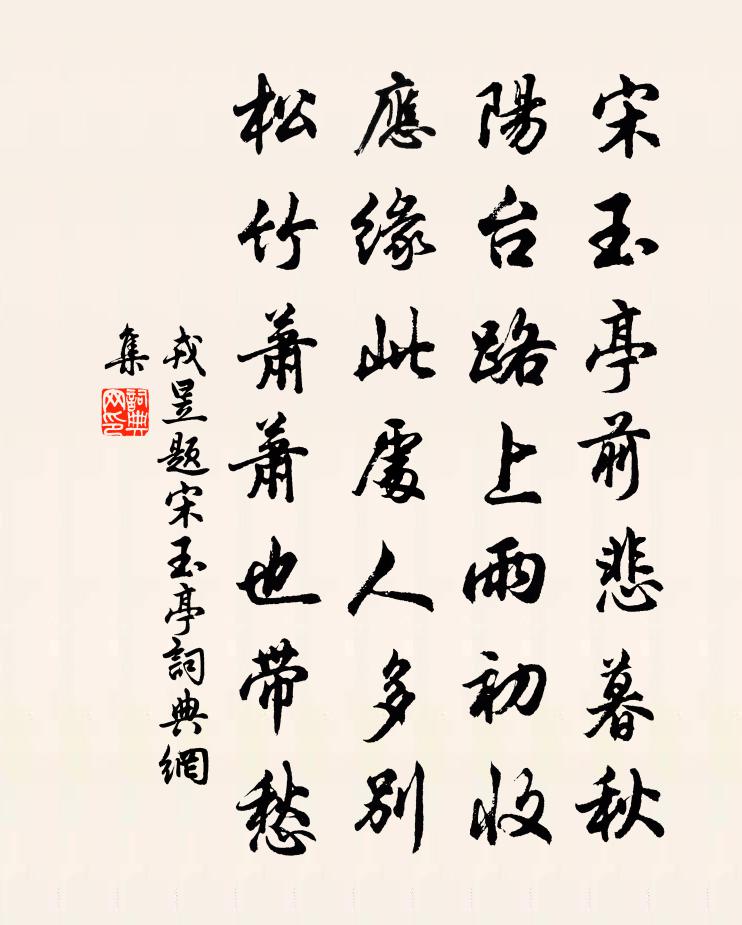 宋玉亭前悲暮秋
陽台路上雨初收
應緣此處人多別
松竹蕭蕭也帶愁
戎昱題宋玉亭詞典網
集
詞典
网印